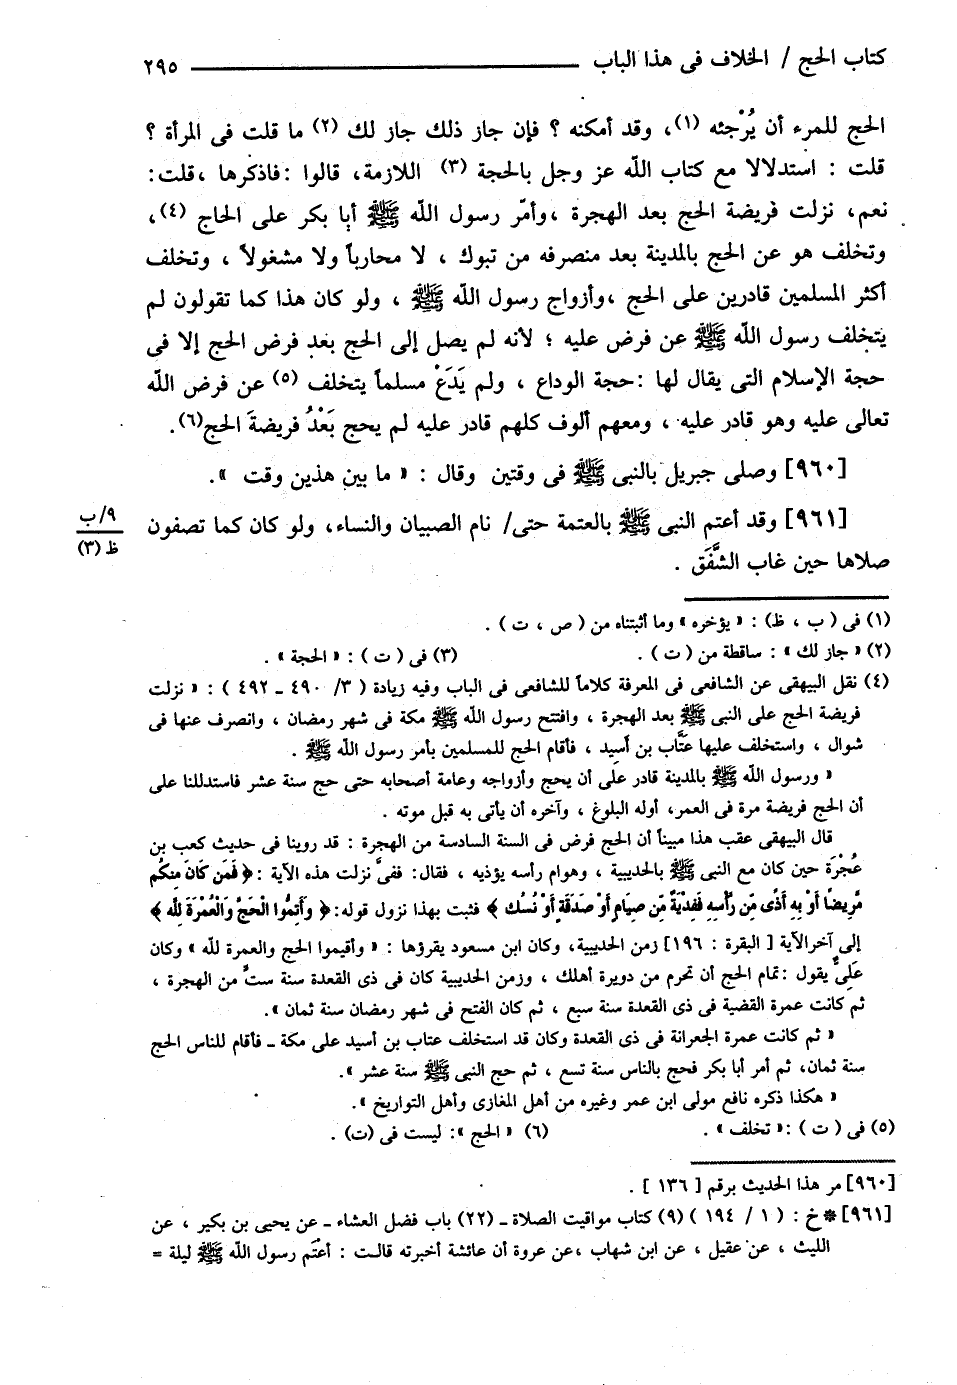 كتاب الحج / الخلاف فى هذا الباب ٢٩٥
الحج للمرء أن يُرْجئه (١)، وقد أمكنه ؟ فإن جاز ذلك جاز لك (٢) ما قلت فى المرأة ؟
قلت : استدلالا مع كتاب الله عز وجل بالحجة (٣) اللازمة، قالوا :فاذكرها ،قلت:
نعم، نزلت فريضة الحج بعد الهجرة ،وأمّر رسول الله ﷺ أبا بكر على الحاج (٤)،
وتخلف هو عن الحج بالمدينة بعد منصرفه من تبوك ، لا محارباً ولا مشغولاً ، وتخلف
أكثر المسلمين قادرين على الحج ،وأزواج رسول الله ﷺ ، ولو كان هذا كما تقولون لم
يتخلف رسول الله ﷺ عن فرض عليه ؛ لأنه لم يصل إلى الحج بعد فرض الحج إلا فى
حجة الإسلام التى يقال لها :حجة الوداع ، ولم يَدَعْ مسلماً يتخلف (٥) عن فرض الله
تعالى عليه وهو قادر عليه ، ومعهم ألوف كلهم قادر عليه لم يحج بَعْدُ فريضةَ الحج(٦).
[٩٦٠] وصلى جبريل بالنبى ﷺ فى وقتين وقال : « ما بين هذين وقت ».
[٩٦١] وقد أعتم النبى ﷺ بالعتمة حتى/ نام الصبيان والنساء، ولو كان كما تصفون
٩/ب
ظ (٣)
صلاها حين غاب الشَّفَق .
(١) فى ( ب ، ظ) : « يؤخره » وما أثبتناه من ( ص ، ت ) .
(٢) « جاز لك » : ساقطة من ( ت ) . (٣) فى ( ت ) : « الحجة » .
(٤) نقل البيهقى عن الشافعى فى المعرفة كلاماً للشافعى فى الباب وفيه زيادة ( ٣/ ٤٩٠ ـ ٤٩٢ ) : « نزلت
فريضة الحج على النبى ﷺ بعد الهجرة ، وافتتح رسول الله ﷺ مكة فى شهر رمضان ، وانصرف عنها فى
شوال ، واستخلف عليها عتَّاب بن أَسِيد ، فأقام الحج للمسلمين بأمر رسول الله ﷺ .
« ورسول الله ﷺ بالمدينة قادر على أن يحج وأزواجه وعامة أصحابه حتى حج سنة عشر فاستدللنا على
أن الحج فريضة مرة فى العمر، أوله البلوغ ، وآخره أن يأتى به قبل موته .
قال البيهقى عقب هذا مبيناً أن الحج فرض فى السنة السادسة من الهجرة : قد روينا فى حديث كعب بن
عُجْرَة حين كان مع النبى ﷺ بالحديبية ، وهوام رأسه يؤذيه ، فقال: ففىَّ نزلت هذه الآية :﴿ فَمَن كَانَ مِنكُم
مَّرِيضًا أَوْ بِهِ أَذًى مِّن رَّأْسِهِ فَفِدْيَةٌ مِّن صِيَامٍ أَوْ صَدَقَةٍ أَوْ نُسُكٍ ﴾ فثبت بهذا نزول قوله:﴿ وَأَتِمُّوا الْحَجَّ وَالْعُمْرَةَ لِلَّهِ ﴾
إلى آخرالآية [ البقرة : ١٩٦] زمن الحديبية، وكان ابن مسعود يقرؤها : « وأقيموا الحج والعمرة لله » وكان
عَلِىٌّ يقول :تمام الحج أن تحرم من دويرة أهلك ، وزمن الحديبية كان فى ذى القعدة سنة ستٍّ من الهجرة ،
ثم كانت عمرة القضية فى ذى القعدة سنة سبع ، ثم كان الفتح فى شهر رمضان سنة ثمان ».
« ثم كانت عمرة الجعرانة فى ذى القعدة وكان قد استخلف عتاب بن أسيد على مكة ـ فأقام للناس الحج
سنة ثمان، ثم أمر أبا بكر فحج بالناس سنة تسع ، ثم حج النبى ﷺ سنة عشر ».
« هكذا ذكره نافع مولى ابن عمر وغيره من أهل المغازى وأهل التواريخ ».
(٥) فى ( ت ) :« تخلف » . (٦) « الحج »: ليست فى (ت) .
[٩٦٠] مر هذا الحديث برقم [ ١٣٦ ] .
[٩٦١] * خ : ( ١ / ١٩٤ ) (٩) كتاب مواقيت الصلاة ـ (٢٢) باب فضل العشاء ـ عن يحيى بن بكير ، عن
الليث ، عن عقيل ، عن ابن شهاب ،عن عروة أن عائشة أخبرته قالت : أعْتَم رسول الله ﷺ ليلة =